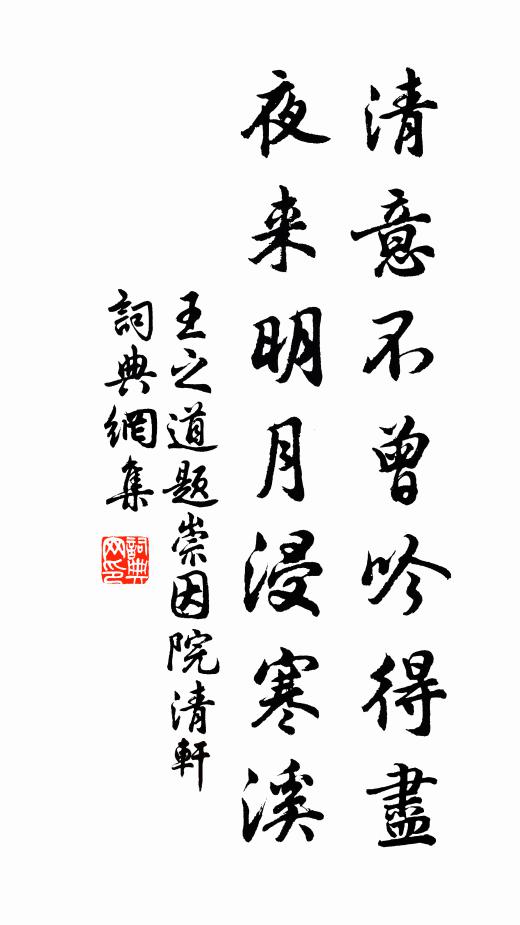 清意不曾吟得盡
夜来明月浸寒溪
王之道题崇因院清軒
詞典網集
詞典網印